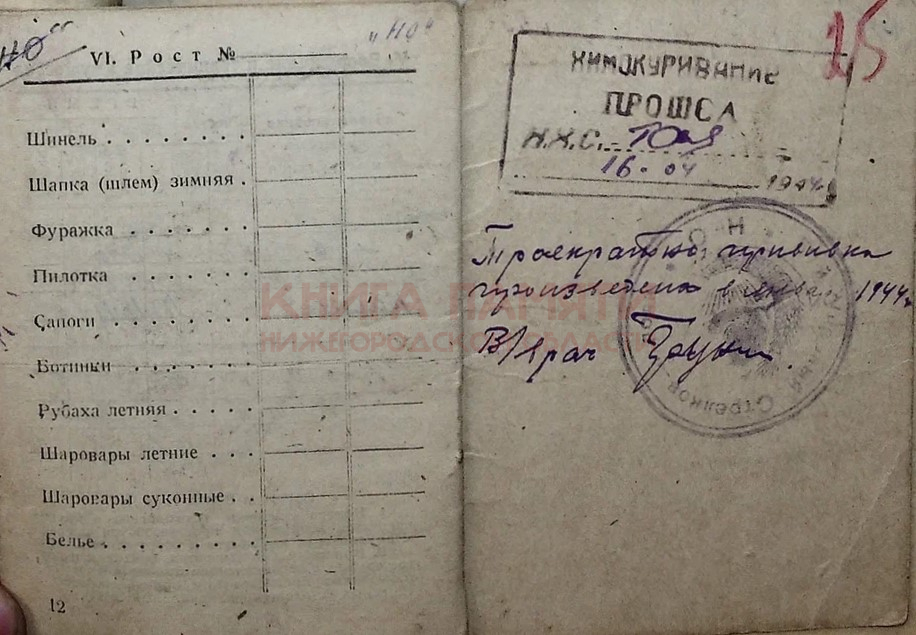 "НО"
VI. Рост №
Шинель
Шапка (шлем) зимняя
Фуражка
Пилотка
Сапоги
Ботинки
Рубаха летняя
Шаровары летние
Шаровары суконные
Белье
12
"НО"
25
ХИМОКУРИВАНИЕ
ПРОШЛА
Н.Х.С.
16-04 1944
Троекратно прививка
произведена в январе 1944
В/врач
Стрелков
КНИГА ПАМЯТИ
НИЖЕГОРОДСКОЙ ОБЛАСТИ